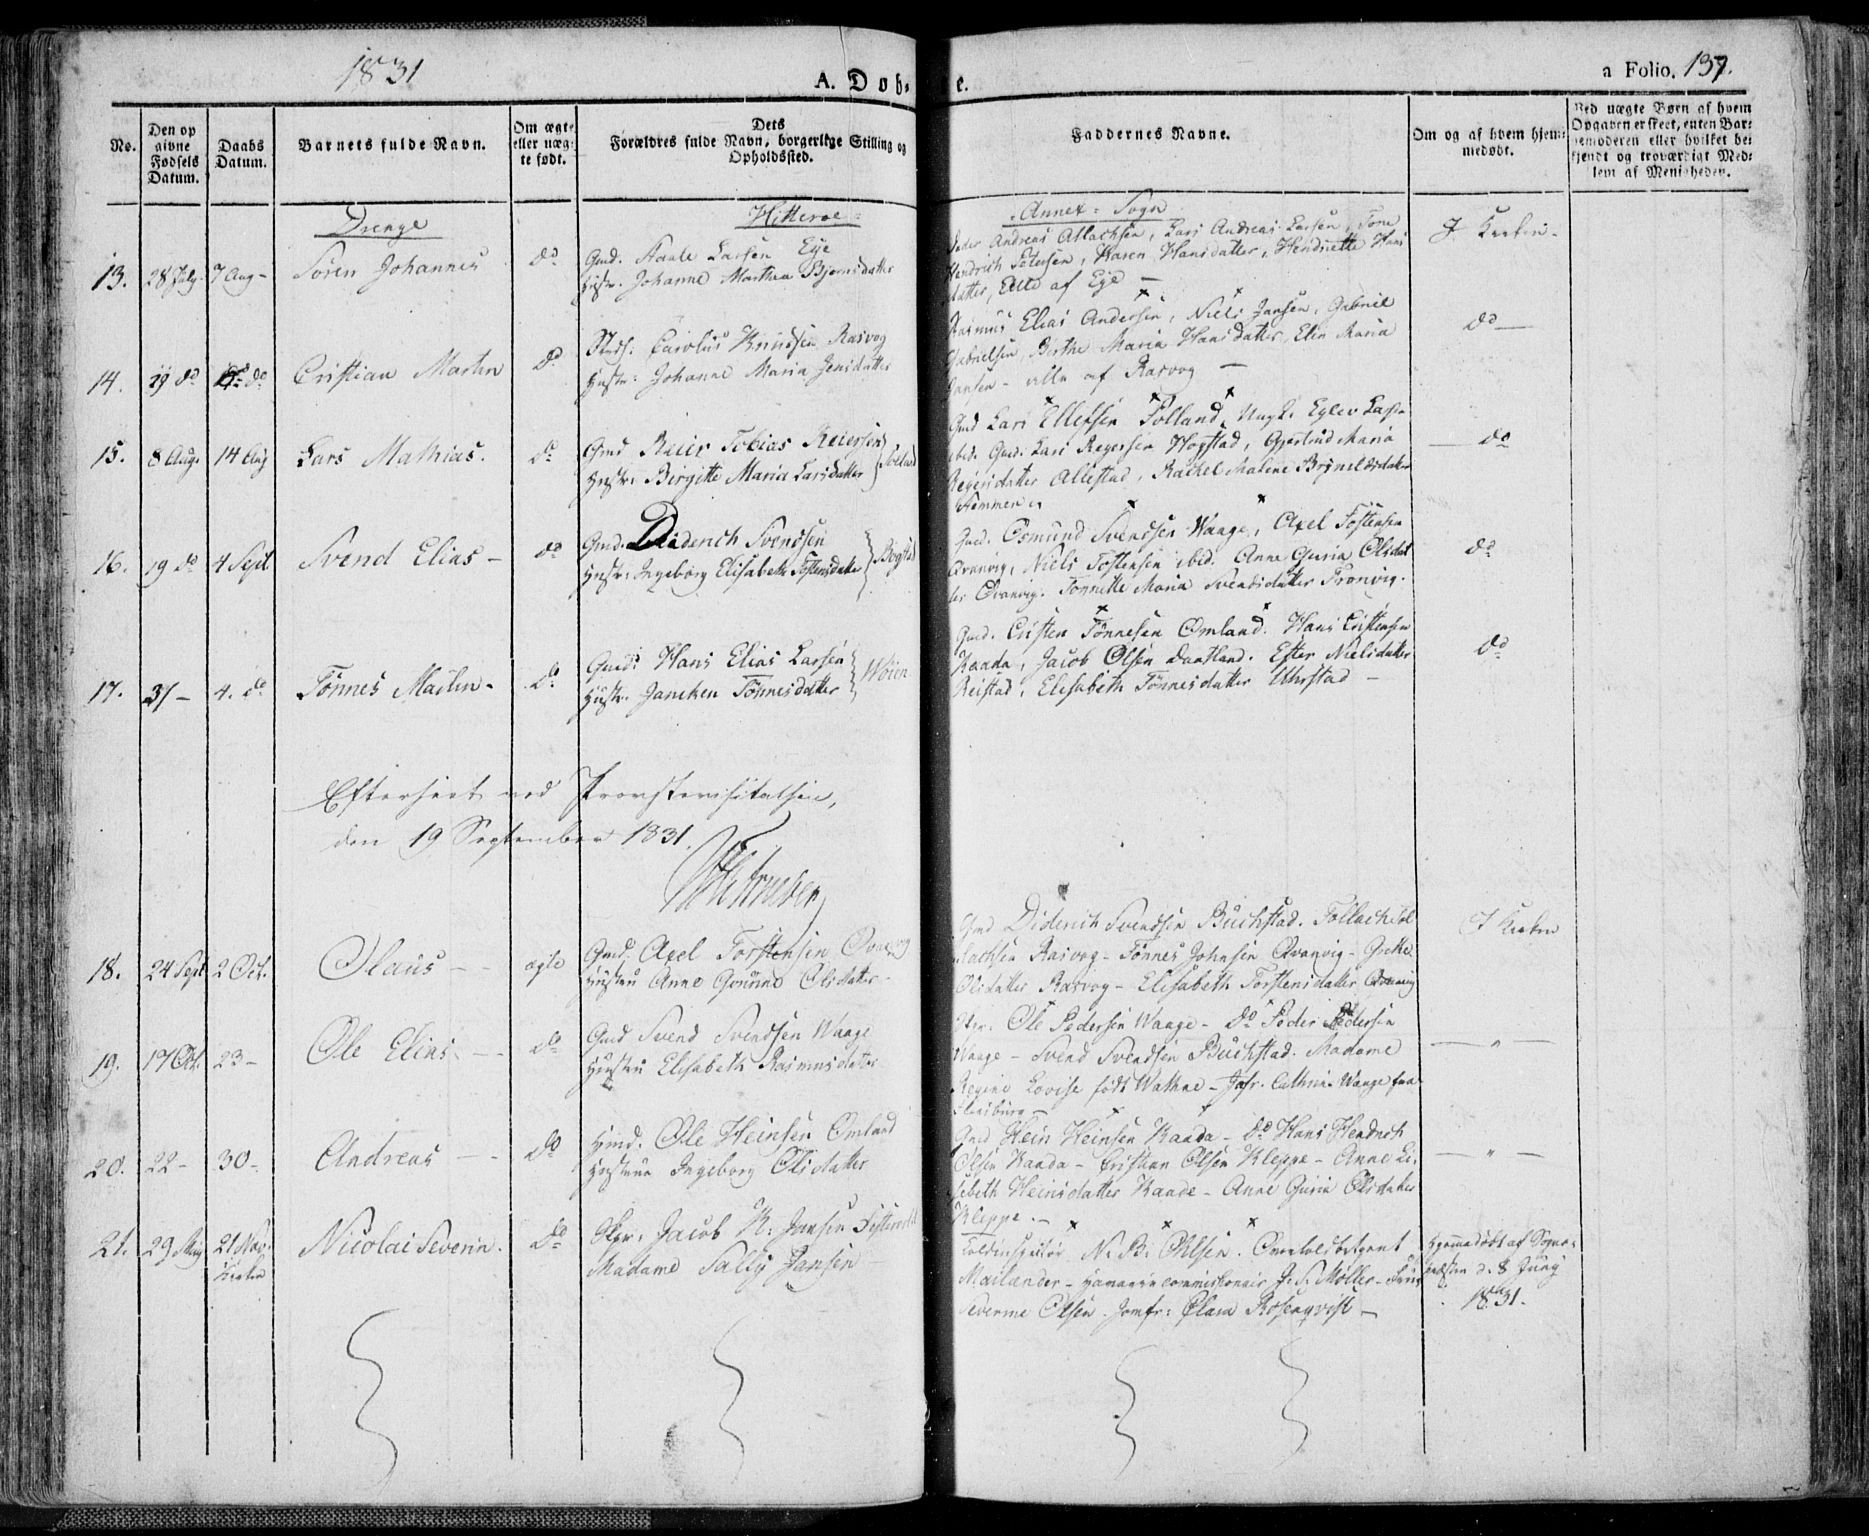 1831
A. Døb-
e.
a Folio. 137.
No.
Den op
givne
Fødsels
Datum.
Daabs
Datum.
Barnets fulde Navn.
Om ægte
eller uæg-
te født.
Dets
Forældres fulde Navn, borgerlige Stilling og
Opholdssted.
Faddernes Navne.
Om og af hvem hjem-
medøbt.
Ved uægte Børn af hvem
Opgaven er skeet, enten Bar-
nemoderen eller hvilket be-
kjendt og troværdigt Med-
lem af Menigheden.
Drenge
Hitteroe =
Annex = Sogn
13. 28 July 7 Aug - Søren Johannes do
Gmd. Staale Larsen Eye
Hustr. Johanne Marthea Bjørnsdatter
Peder Andreas Atlachsen, Lars Andreas Larsen, Tone
Hendrich Salvesen, Karen Hansdatter, Hendriette Hans
datter, Alle af Eye —
I Kirken -
14. 29 do do Cristian Martin do
Strds: Carolus Knudsen Rasvog
Hustr: Johanne Maria Jensdatter
Rasmus Elias Andersen, Niels Jansen, Gabriel
Gabrielsen, Birthe Maria Hansdatter, Elen Maria
Jansen - alle af Rasvog —
do —
15. 8 Aug. 14 Aug Lars Mathias. do
Gmd Reier Tobias Reiersen
Hustr: Birgitte Maria Larsdatter
Gmd Lars Ellefsen Folland, Ungk. Eylev Lars
ibid. Gmd. Lars Reyersen Hogstad, Gjertrud Maria
Reyersdatter Allestad, Rachel Malene Brynildsdatter
— do
16. 19 do 4 Sept Svend Elias - do
Gmd. Diderich Svendsen
Hustr: Ingeborg Elisabeth Tostensdatter } Bogstad
Gmd. Osmund Svendsen Waage, Axel Tostensen
Qvanvig, Niels Tostensen ibid. Anne Guria Olsdat
ter Qvanvig. Tonnette Maria Svendsdatter Tronvig.
do
17. 31 - 4. do Tønnes Martin - do
Gmd: Hans Elias Larsen
Hustr. Janeken Tønnesdatter } Wøien
Gmd. Cristen Tønnesen Omland. Hans Cristensen
Kaada, Jacob Olsen Daatland. Ester Nielsdatter
Reistad, Elisabeth Tønnesdatter Uhrstad -
do
Efterseet ved Provstevisitatsen,
den 19 September 1831.
18. 24 Sept 2 Oct. Olaus - - ægte
Gmd. Axel Torstensen Qvanvig
Hustru Anne Gunine Olsdatter -
Gmd Diderich Svendsen Buchstad. Tollach Tol
lachsen Rasvog - Tønnes Johnsen Qvanvig - Grethe
Olsdatter Rasvog - Elisabeth Torstensdatter Qvanvig
I Kirken
19. 17 Oct. 23 - Ole Elias. - - do
Gmd Svend Svendsen Waage
Hustru Elisabeth Rasmusdatter
Ole Pedersen Waage - do Peder Pedersen
Waage - Svend Svendsen Buchstad. Madame
Regine Lovise født Wathne - Jofr. Cathrine Waage fra
Flensburg -
— " —
20. 22 - 30 - Andreas - - do
Hmd. Ole Heinsen Omland
Hustrue Ingeborg Olsdatter
Gmd Hein Heinsen Kaada - do Hans Hendrich
Olsen Kaada - Cristian Olsen Kleppe - Anne Li-
sebeth Heinsdatter Kaade - Anne Guria Olsdatter
Kleppe. -
— " —
21. 29 May 21 Nov. Nicolai Severin. do
Kirken
Skpr. Jacob K. Jansen
Madame Sally Jansen -
Toldinspektør N. B. Ohlsen. Overtoldbetjent
Mailander - Havariecommissionair J. S. Møller - Frue
Severine Olsen. Jomfr: Clara Rosenqvist -
Hjemmedøbt af Sogne-
præsten d. 8 Juny
1831.